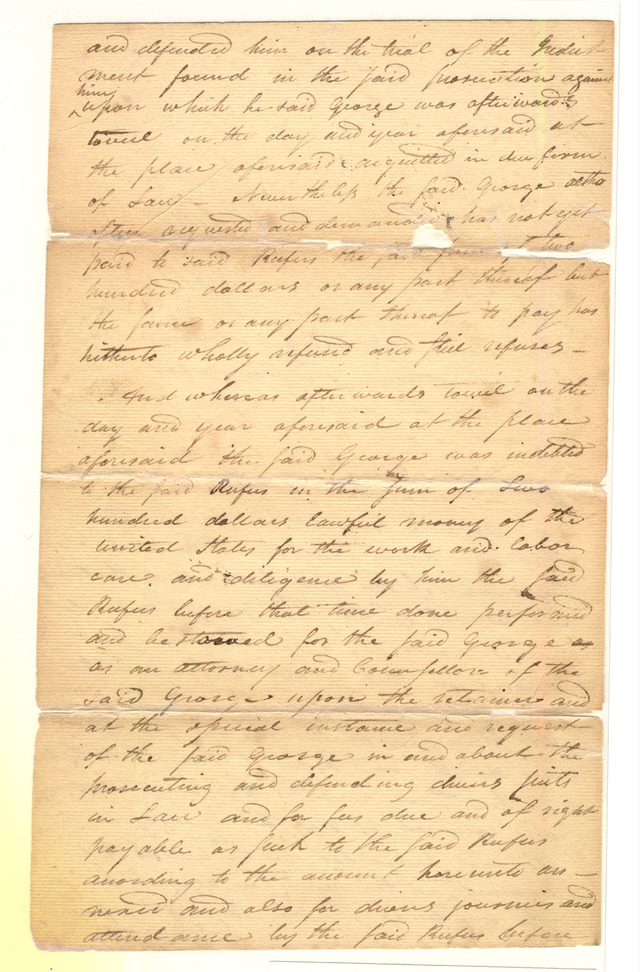 and defended him on the trial of the Indict
ment found in the said prosecution against
him
upon which he said George was afterwards
towit on the day and year aforesaid at
the place aforesaid acquitted in due form
of Law — Nevertheless the said George altho
often requested and demanded has not yet
paid to said Rufus the said sum of two
hundred dollars or any part thereof but
the same or any part thereof to pay has
hitherto wholly refused and still refuses —
And whereas afterwards towit on the
day and year aforesaid at the place
aforesaid the said George was indebted
to the said Rufus in the sum of Two
hundred dollars lawful money of the
United States for the work and labor
care and diligence by him the said
Rufus before that time done performed
and bestowed for the said George
as an attorney and Counsellor of the
said George upon the retainer and
at the special instance and request
of the said George in and about the
prosecuting and defending divers suits
in Law and for fees due and of right
payable as such to the said Rufus
according to the amount hereunto an—
nexed and also for divers journies and
attendance by the said Rufus before